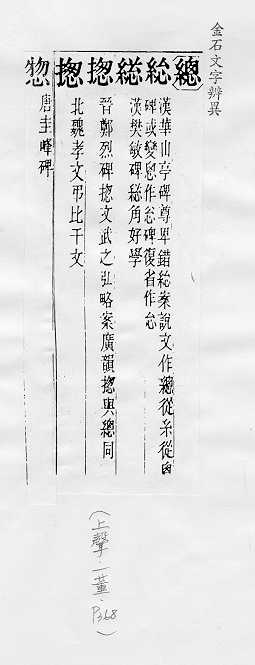 金石文字辨異
總
総 漢華山亭碑尊卑錯総案說文作總從糸從悤
碑或變悤作怱碑復省作怠
総 漢樊敏碑総角好學
揔 晉鄭烈碑揔文武之弘略案廣韻揔與總同
揔 北魏孝文弔比干文
惣 唐圭峰碑
(上聲·一董·P368)